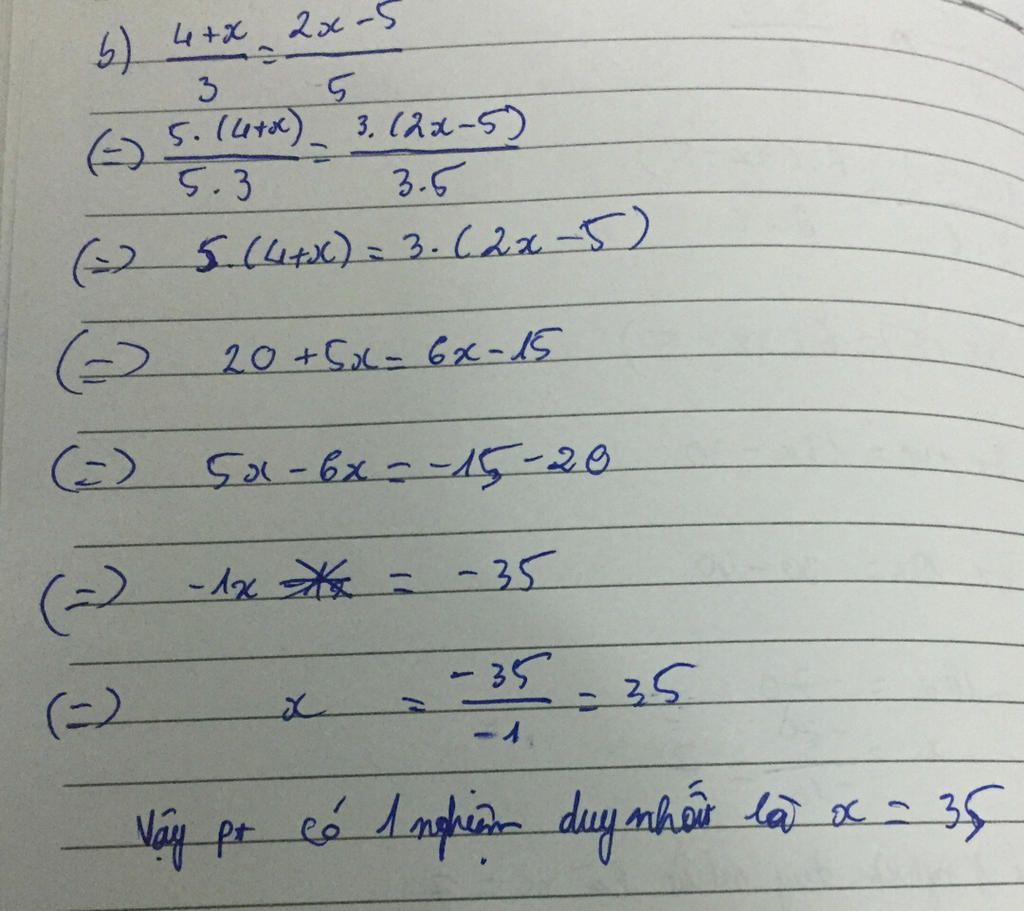 b) (4+x)/3 = (2x-5)/5
(=) 5.(4+x)/5.3 = 3.(2x-5)/3.5
(=) 5.(4+x) = 3.(2x-5)
(=) 20+5x = 6x-15
(=) 5x-6x = -15-20
(=) -1x = -35
(=) x = -35/-1 = 35
Vậy pt có 1 nghiệm duy nhất là x = 35